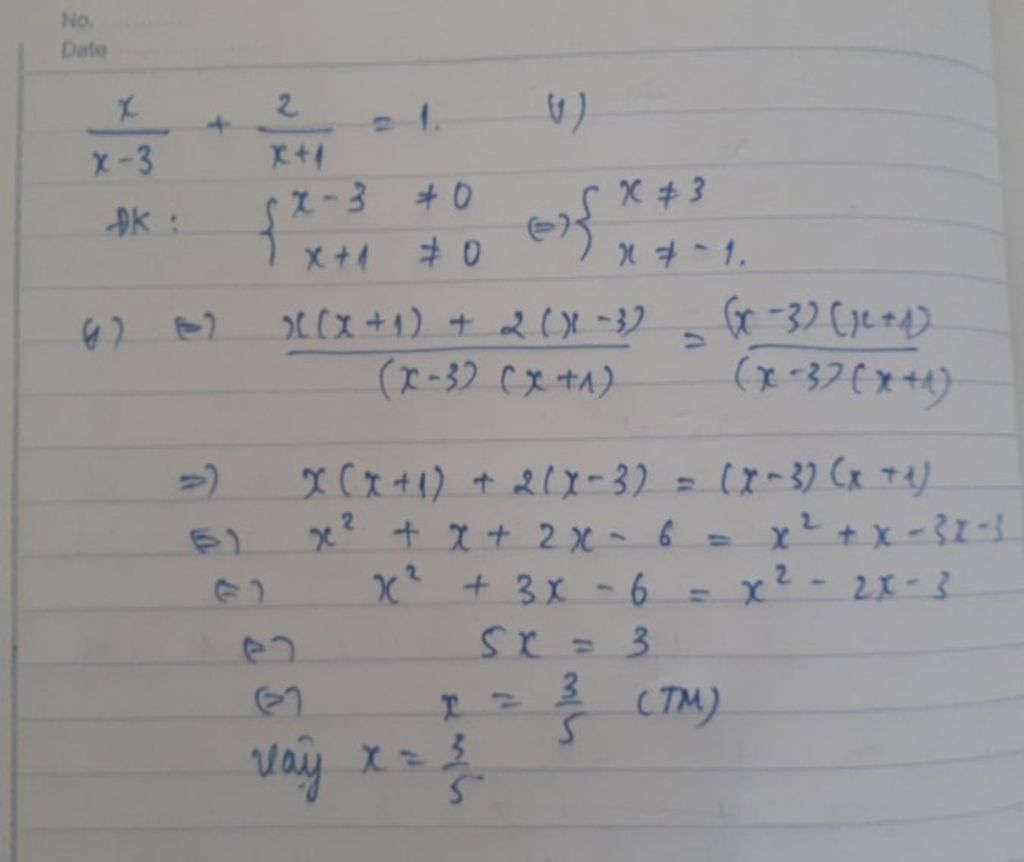 No.
Date
x/(x-3) + 2/(x+1) = 1. (1)
ĐK: { x-3 ≠ 0 <=> { x ≠ 3
x+1 ≠ 0 x ≠ -1.
(1) <=> (x(x+1) + 2(x-3))/((x-3)(x+1)) = ((x-3)(x+1))/((x-3)(x+1))
=> x(x+1) + 2(x-3) = (x-3)(x+1)
<=> x² + x + 2x - 6 = x² + x - 3x - 3
<=> x² + 3x - 6 = x² - 2x - 3
<=> 5x = 3
<=> x = 3/5 (TM)
Vậy x = 3/5